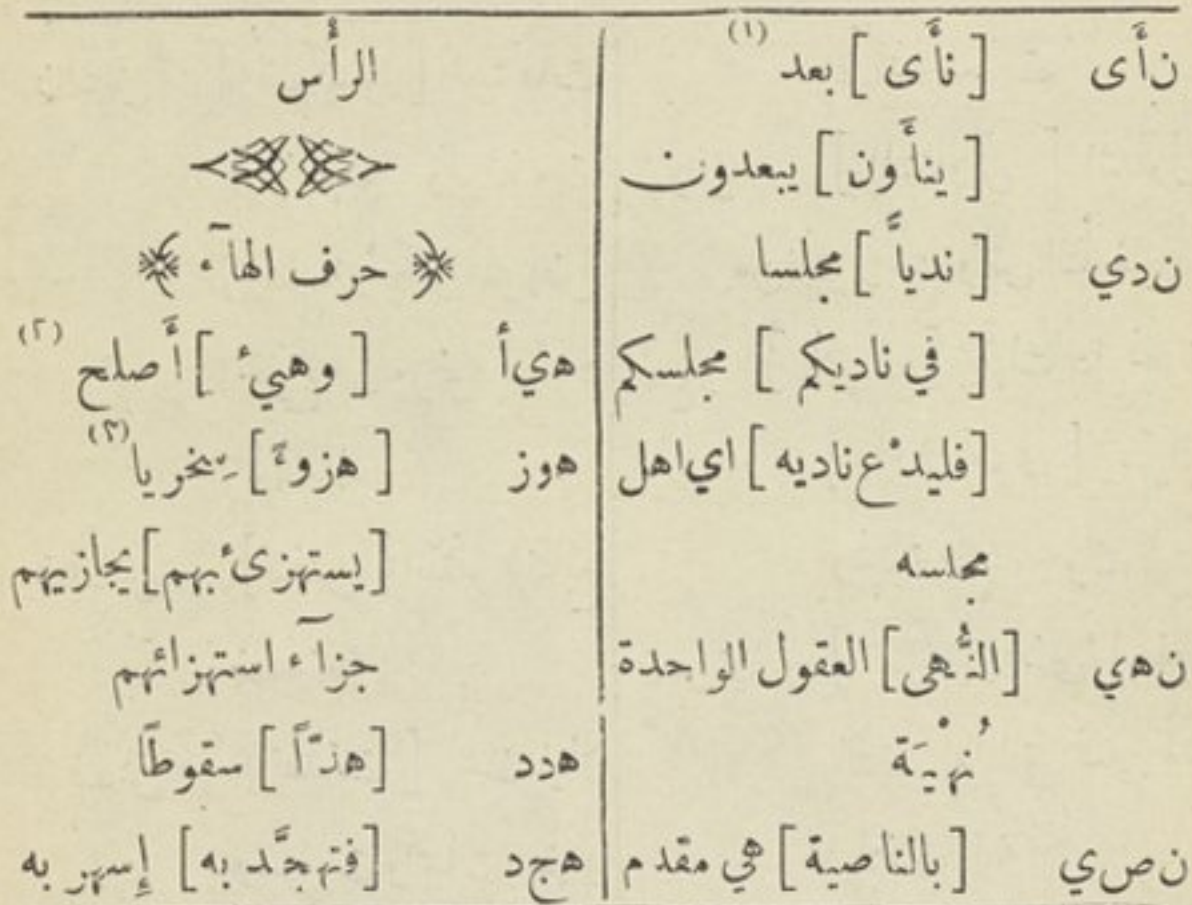 ن أَ ى [ نأَى ] بعد (١)
[ ينأَون ] يبعدون
ن د ي [ ندياً ] مجلسا
[ في ناديكم ] مجلسكم
[فليدْع ناديه] اي اهل
مجلسه
ن ه ي [النُّهى] العقول الواحدة
نُهْيَة
ن ص ي [بالناصية] هي مقدم
الرأْس
حرف الهآء
ه ي أ [ وهيئ ] أَصلح (٢)
ه و ز [ هزوءً] سِخريا (٣)
[يستهزئ بهم] يجازيهم
جزآء استهزائهم
ه د د [هدّاً] سقوطًا
ه ج د [فتهجَّد به] إِسهر به